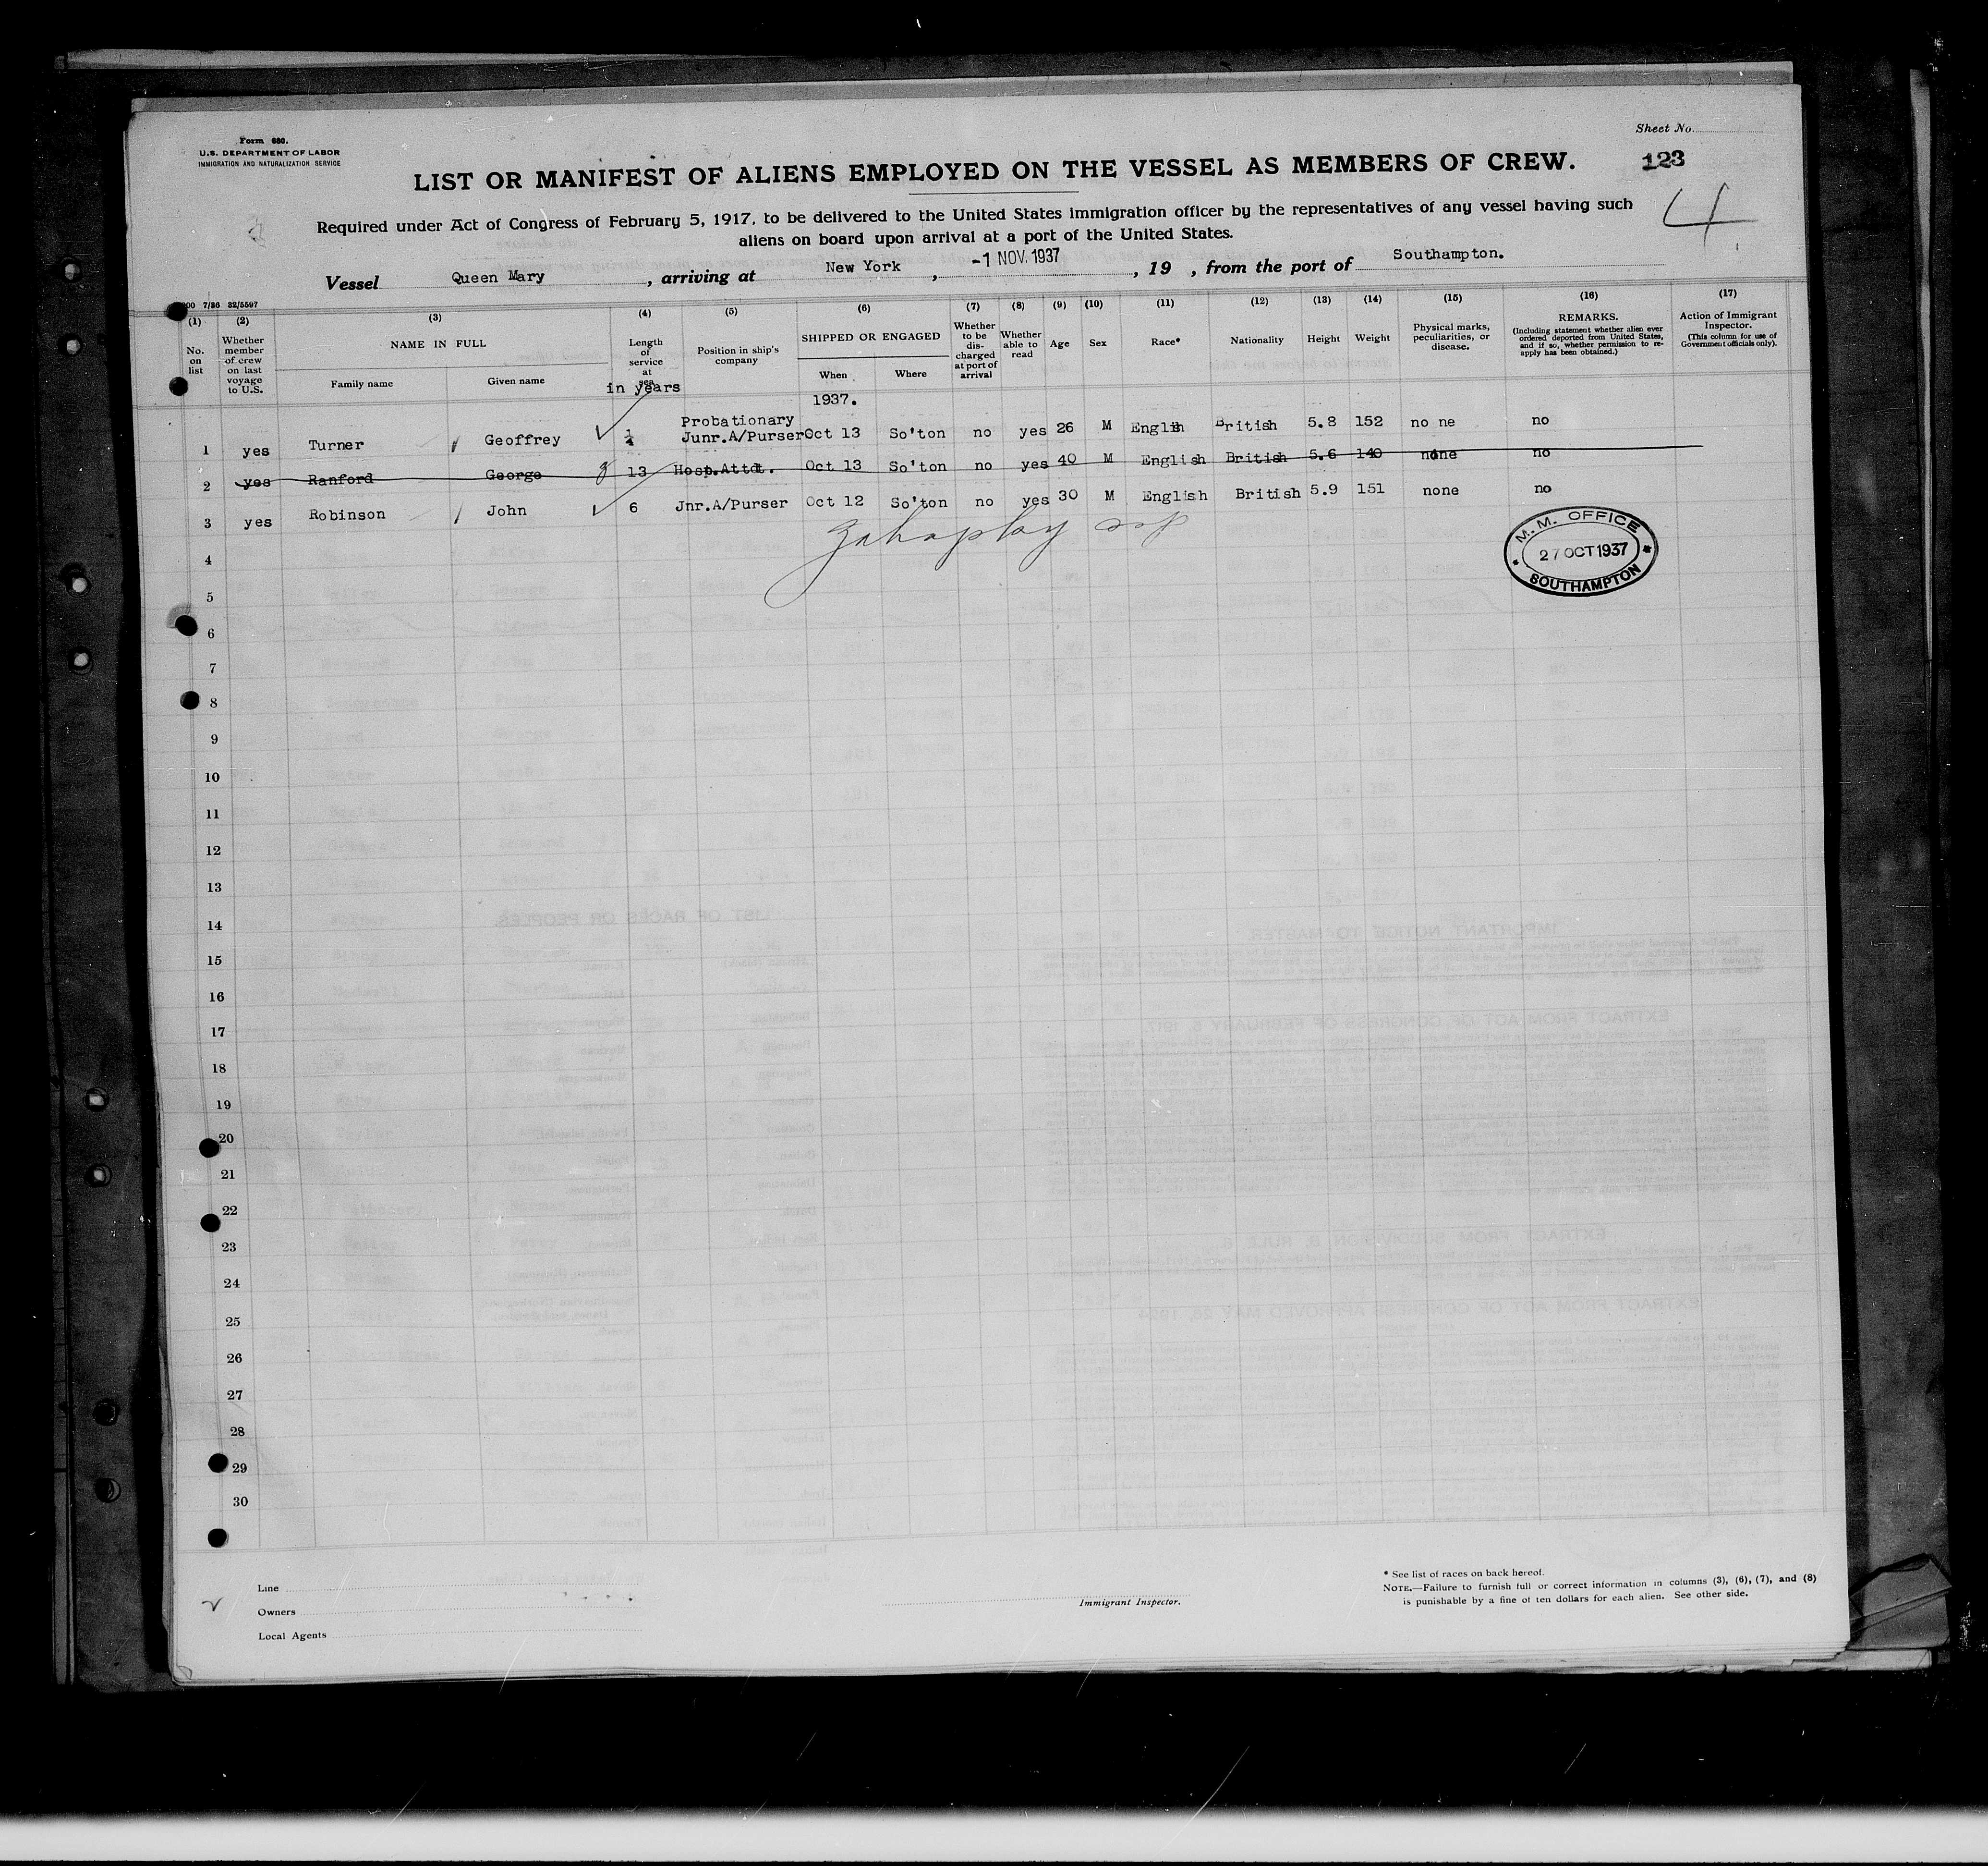 Form 680.
U.S. DEPARTMENT OF LABOR
IMMIGRATION AND NATURALIZATION SERVICE
Sheet No.
123
LIST OR MANIFEST OF ALIENS EMPLOYED ON THE VESSEL AS MEMBERS OF CREW.
4
Required under Act of Congress of February 5, 1917, to be delivered to the United States immigration officer by the representatives of any vessel having such
aliens on board upon arrival at a port of the United States.
Vessel Queen Mary, arriving at New York, -1 NOV. 1937, 19 , from the port of Southampton.
00 7/36 32/5597
(1) (2) (3) (4) (5) (6) (7) (8) (9) (10) (11) (12) (13) (14) (15) (16) (17)
No. on list
Whether member of crew on last voyage to U.S.
NAME IN FULL
Family name
Given name
Length of service at sea
in years
Position in ship's company
SHIPPED OR ENGAGED
When
Where
Whether to be discharged at port of arrival
Whether able to read
Age
Sex
Race*
Nationality
Height
Weight
Physical marks, peculiarities, or disease.
REMARKS.
(Including statement whether alien ever ordered deported from United States, and if so, whether permission to re-apply has been obtained.)
Action of Immigrant Inspector.
(This column for use of Government officials only).
1937.
1 yes Turner Geoffrey 1/4 Probationary Junr.A/Purser Oct 13 So'ton no yes 26 M English British 5.8 152 no ne no
2 yes Ranford George 13 Hosp.Attdt. Oct 13 So'ton no yes 40 M English British 5.6 140 none no
3 yes Robinson John 6 Jnr.A/Purser Oct 12 So'ton no yes 30 M English British 5.9 151 none no
M. M. OFFICE
27 OCT 1937
SOUTHAMPTON
4
5
6
7
8
9
10
11
12
13
14
15
16
17
18
19
20
21
22
23
24
25
26
27
28
29
30
Line
Owners
Local Agents
Immigrant Inspector.
* See list of races on back hereof.
NOTE.—Failure to furnish full or correct information in columns (3), (6), (7), and (8)
is punishable by a fine of ten dollars for each alien. See other side.